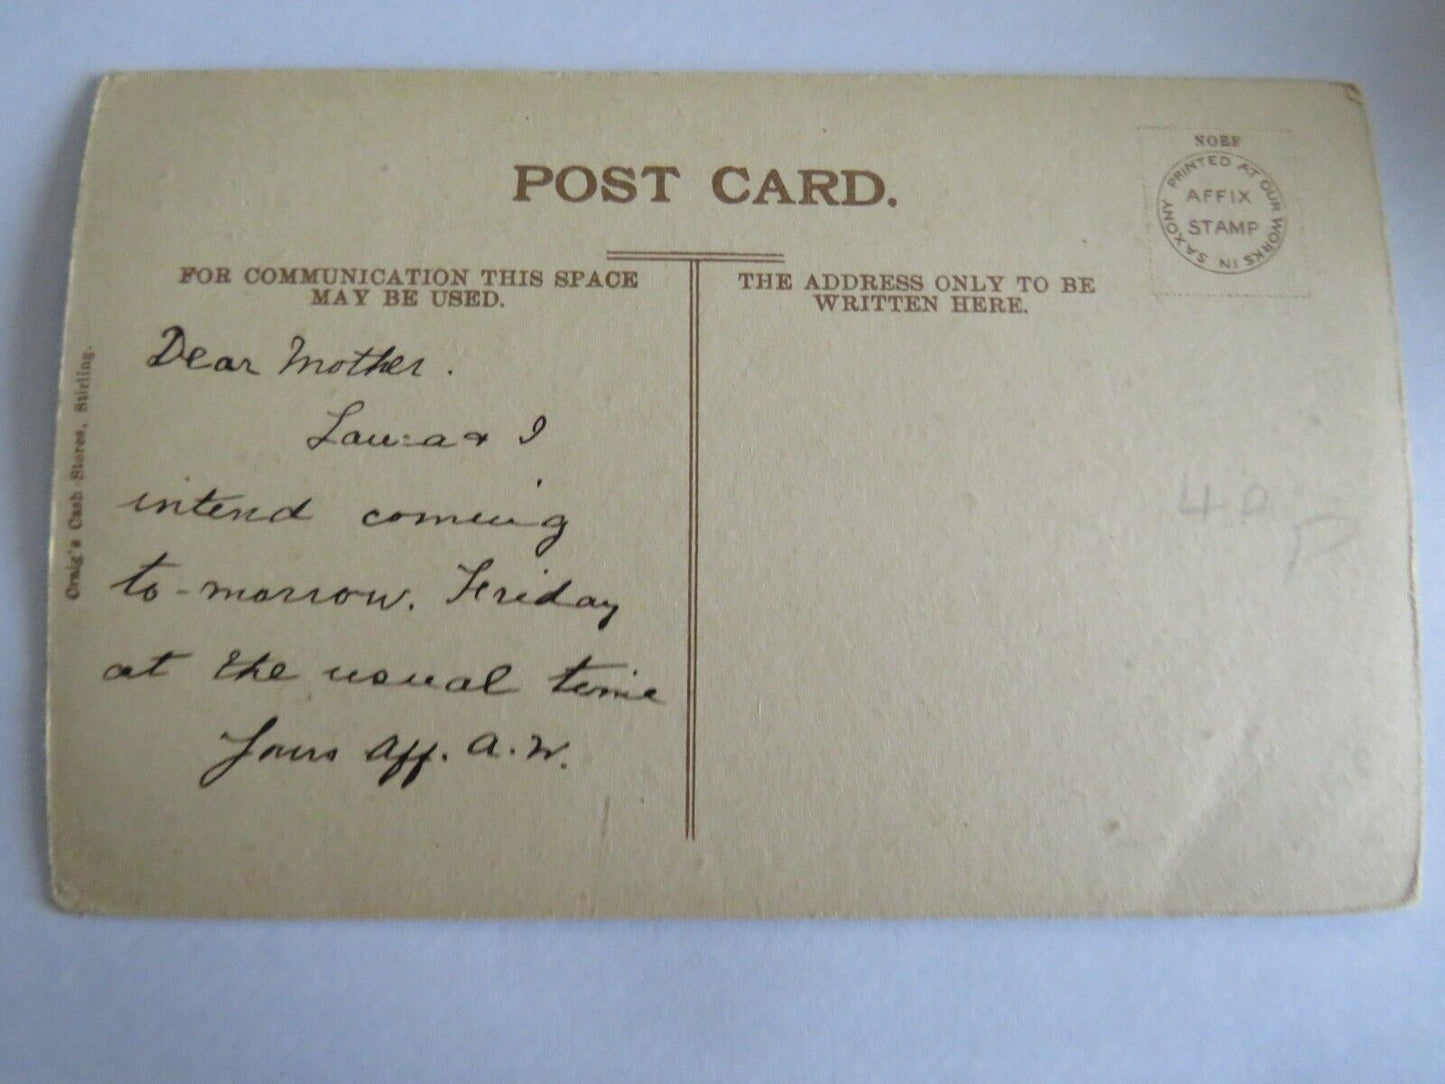 POST CARD.
NOEF
PRINTED AT OUR WORKS IN SAXONY
AFFIX
STAMP
FOR COMMUNICATION THIS SPACE
MAY BE USED.
THE ADDRESS ONLY TO BE
WRITTEN HERE.
Craig's Cash Stores, Stirling.
Dear Mother.
Laura & I
intend coming
to-morrow. Friday
at the usual time
Yours Aff. A.W.
40
P